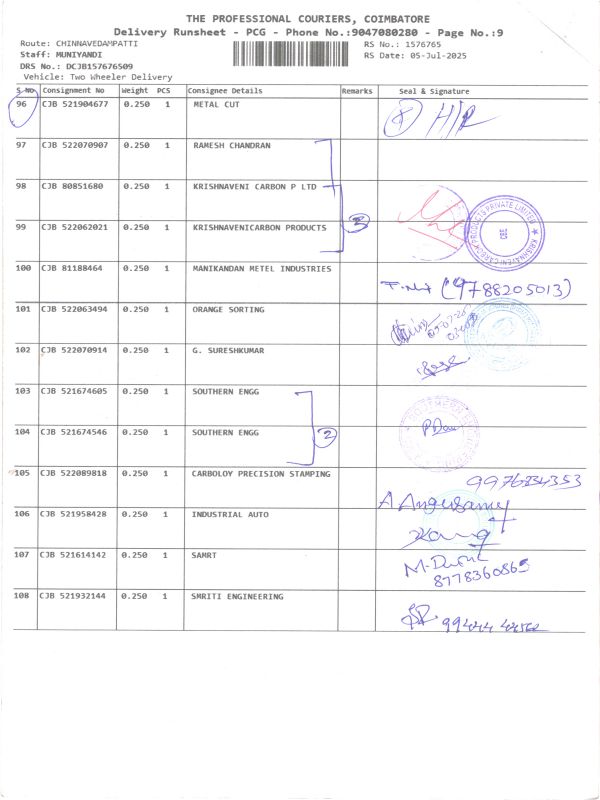 THE PROFESSIONAL COURIERS, COIMBATORE
Delivery Runsheet - PCG - Phone No.:9047080280 - Page No.:9
Route: CHINNAVEDAMPATTI
RS No.: 1576765
Staff: MUNIYANDI
RS Date: 05-Jul-2025
DRS No.: DCJB157676509
Vehicle: Two Wheeler Delivery
S No Consignment No Weight PCS Consignee Details Remarks Seal & Signature
96 CJB 521904677 0.250 1 METAL CUT
97 CJB 522070907 0.250 1 RAMESH CHANDRAN
98 CJB 80851680 0.250 1 KRISHNAVENI CARBON P LTD
99 CJB 522062021 0.250 1 KRISHNAVENICARBON PRODUCTS 3
KRISHNAVENI CARBON PRODUCTS PRIVATE LIMITED
100 CJB 81188464 0.250 1 MANIKANDAN METEL INDUSTRIES
(9788205013)
101 CJB 522063494 0.250 1 ORANGE SORTING
102 CJB 522070914 0.250 1 G. SURESHKUMAR
103 CJB 521674605 0.250 1 SOUTHERN ENGG
104 CJB 521674546 0.250 1 SOUTHERN ENGG 2
105 CJB 522089818 0.250 1 CARBOLOY PRECISION STAMPING
9976834353
106 CJB 521958428 0.250 1 INDUSTRIAL AUTO
107 CJB 521614142 0.250 1 SAMRT
8778360865
108 CJB 521932144 0.250 1 SMRITI ENGINEERING